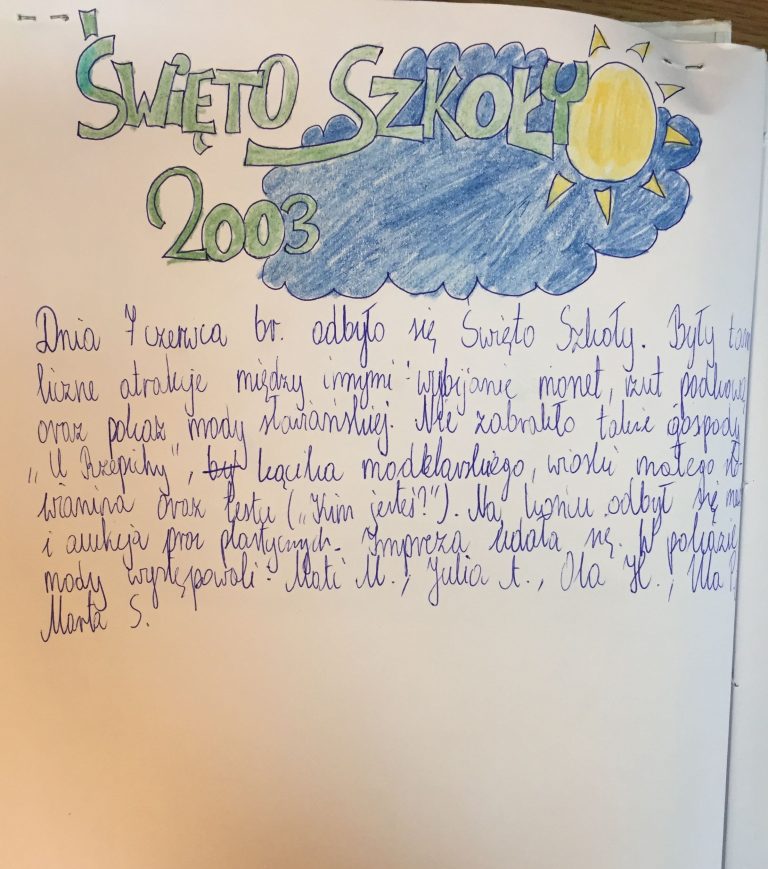 ŚWIĘTO SZKOŁY
2003
Dnia 7 czerwca br. odbyło się Święto Szkoły. Były tam
liczne atrakcje między innymi: wybijanie monet, rzut podkową
oraz pokaz mody słowiańskiej. Nie zabrakło także gospody
„U Rzepichy", kącika modelarskiego, wioski małego sło-
wianina oraz testu („Kim jesteś?"). Na koniec odbył się
i aukcja prac plastycznych. Impreza udała się. W pokazie
mody występowali: Mati M., Julia A., Ola H., Ula
Marta S.